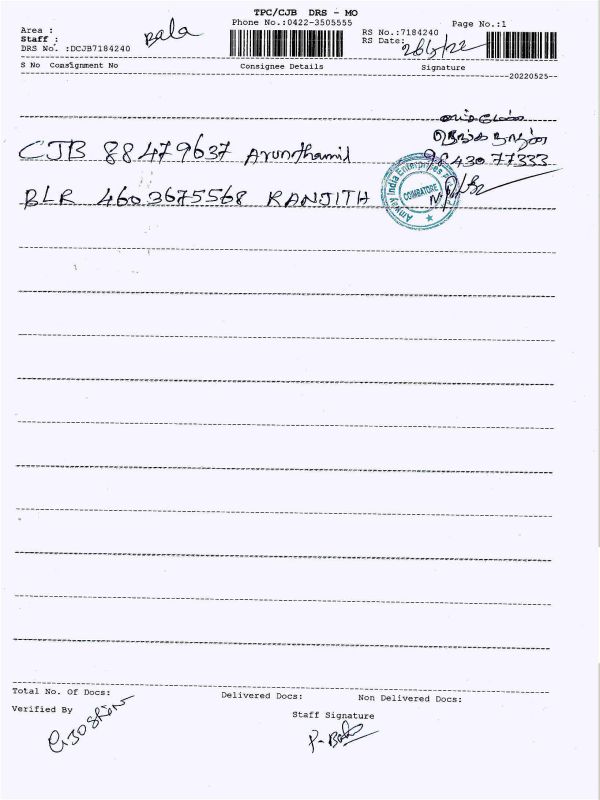 TPC/CJB DRS - MO
Phone No.:0422-3505555
Page No.:1
Area :
Staff :
Bala
RS No.:7184240
RS Date:
DRS No. :DCJB7184240
S No Consignment No Consignee Details Signature
20220525
CJB 88479637 Arunthamil
98430 77333
BLR 4603675568 RANJITH
Amway India Enterprises
COIMBATORE
Total No. Of Docs: Delivered Docs: Non Delivered Docs:
Verified By
Staff Signature
P-Bala